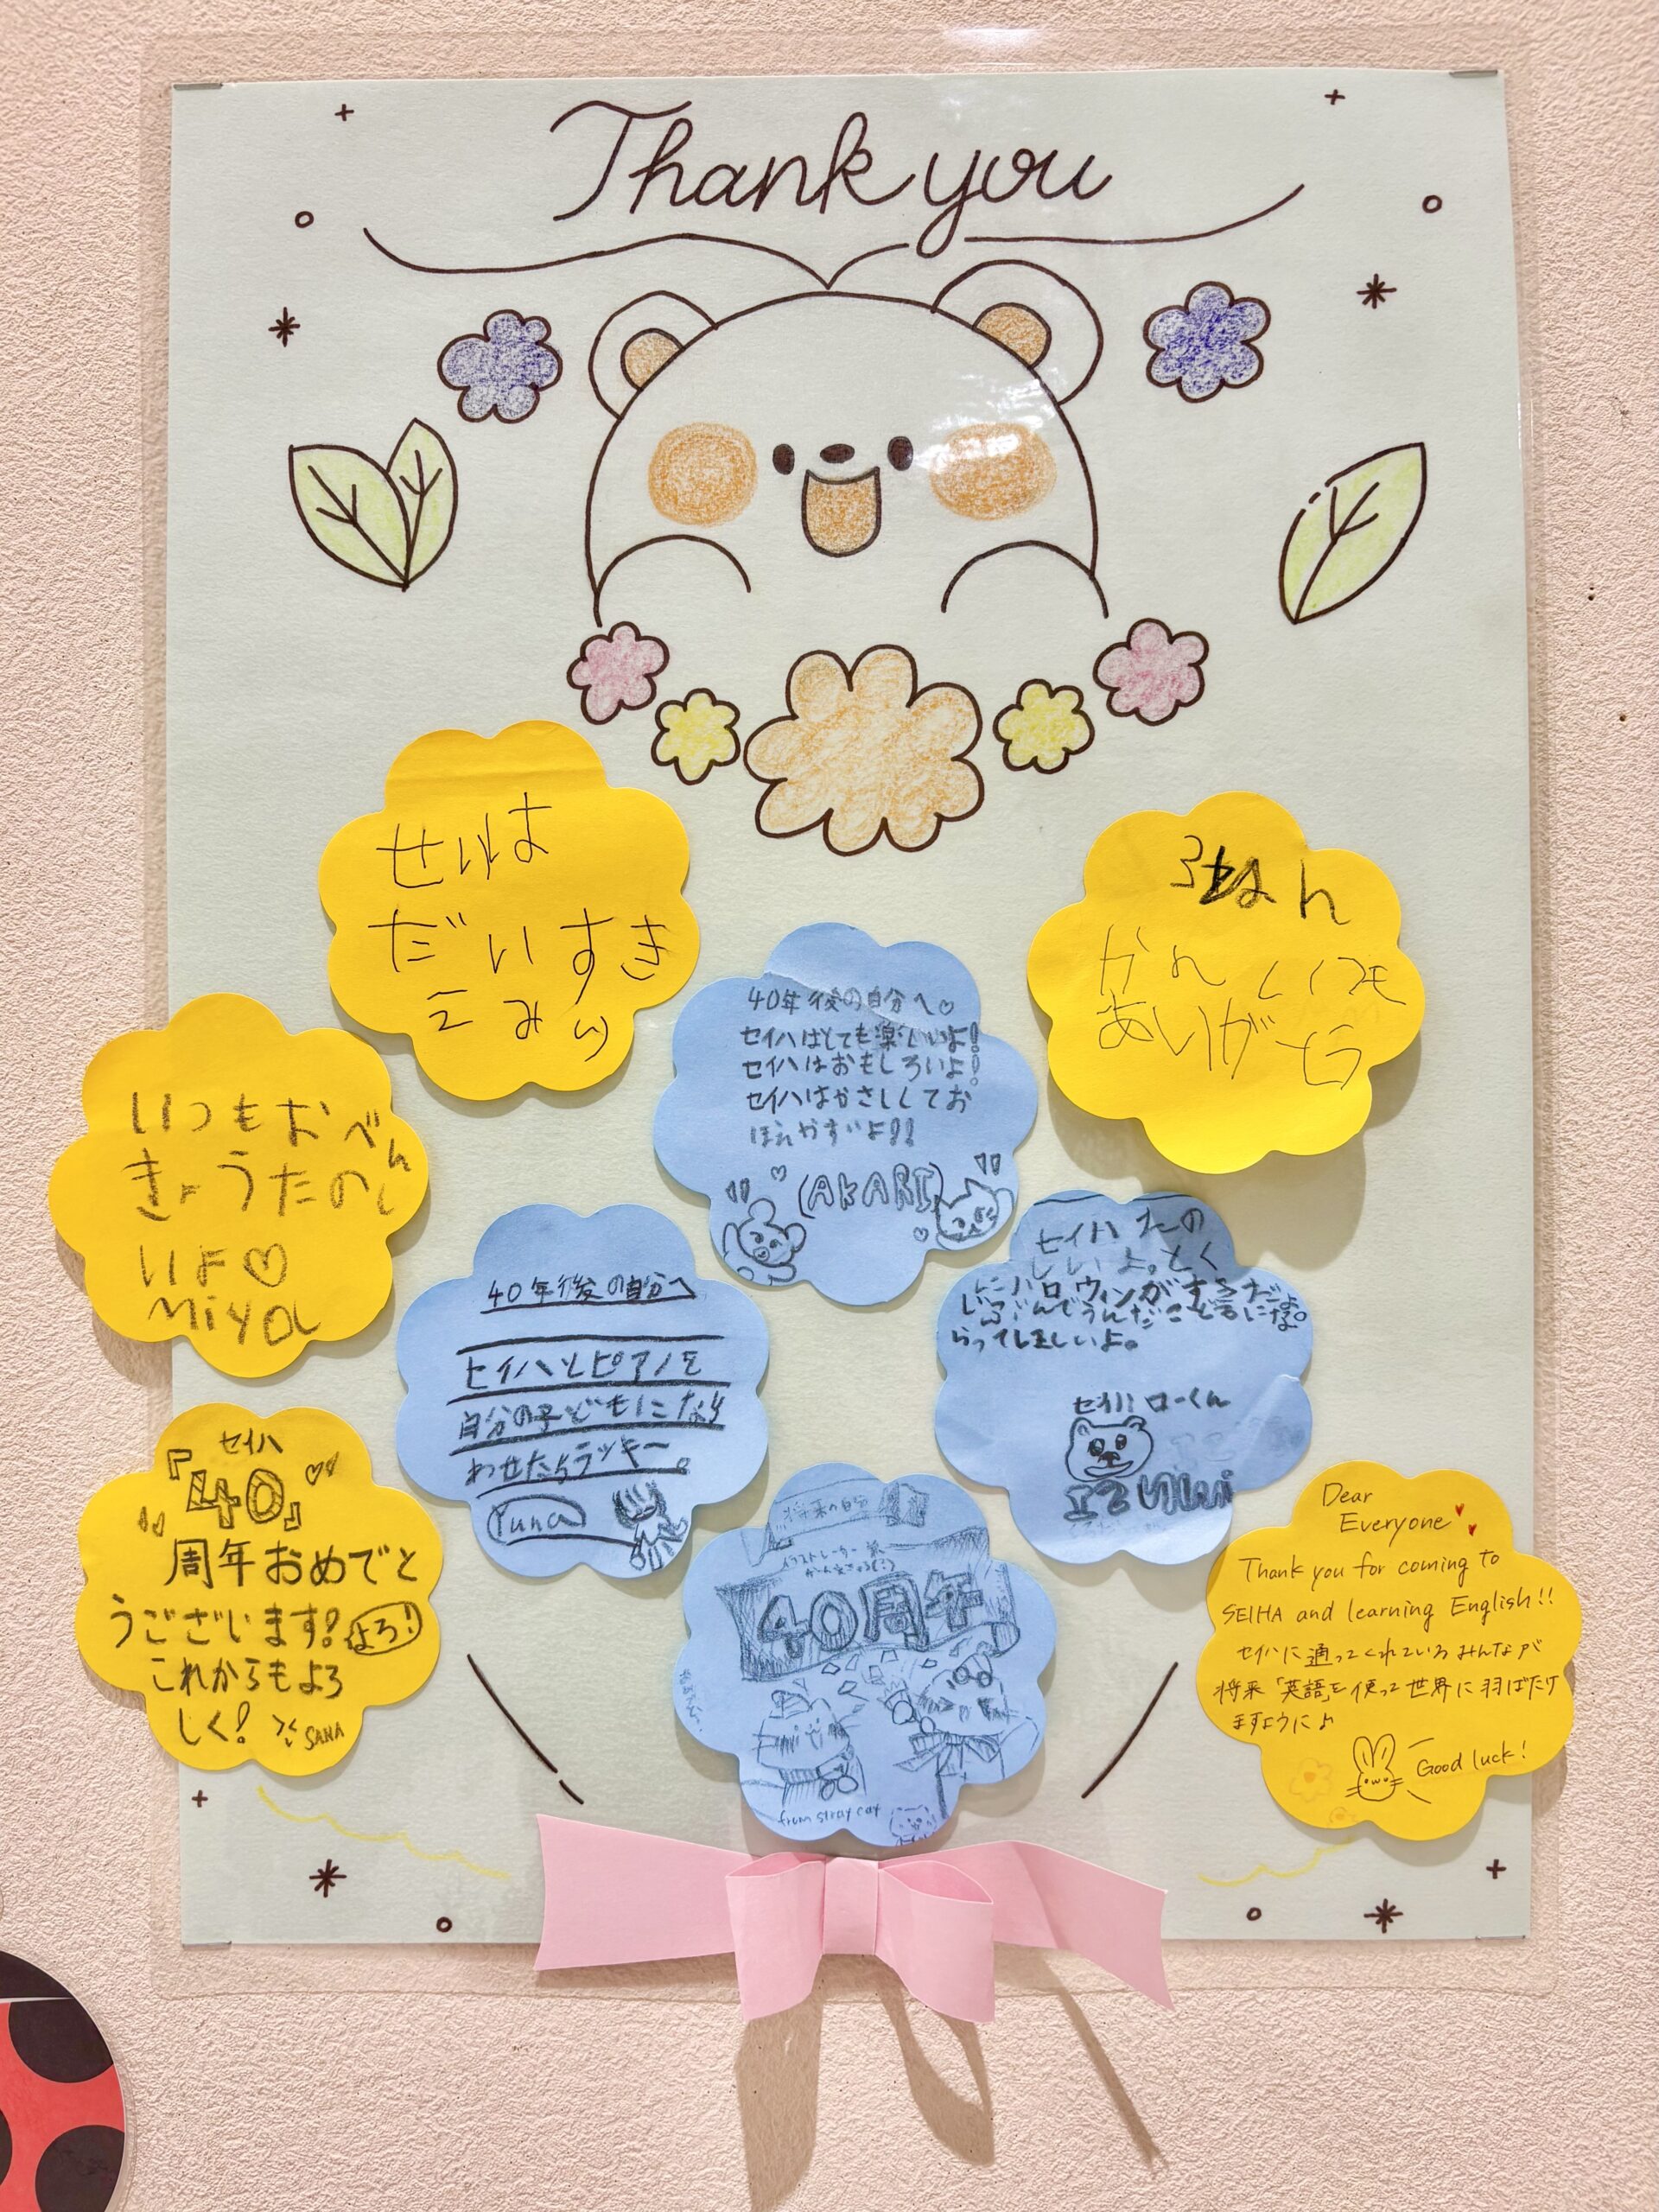 Thank you
せいは
だいすき
えみり
ろねん
かん いつも
ありがとう
40年後の自分へ♡
セイハはとても楽しいよ!
セイハはおもしろいよ!
セイハはやさしくてお
ぼえやすいよ!!
(AKARI)
いつもおべん
きょうたのし
いよ♡
Miya
40年後の自分へ
セイハとピアノを
自分の子どもになら
わせたらラッキー。
Yuna
セイハ たの
しいよ。とく
にハロウィンが
らってほしいよ。
セイハローくん
セイハ
『40』
周年おめでと
うございます! よろ!
これからもよろ
しく! SANA
将来の自分
イラストレーター
40周年
from stray cat
Dear
Everyone
Thank you for coming to
SEIHA and learning English!!
セイハに通ってくれているみんなが
将来「英語」を使って世界に羽ばたけ
ますように♪
Good luck!